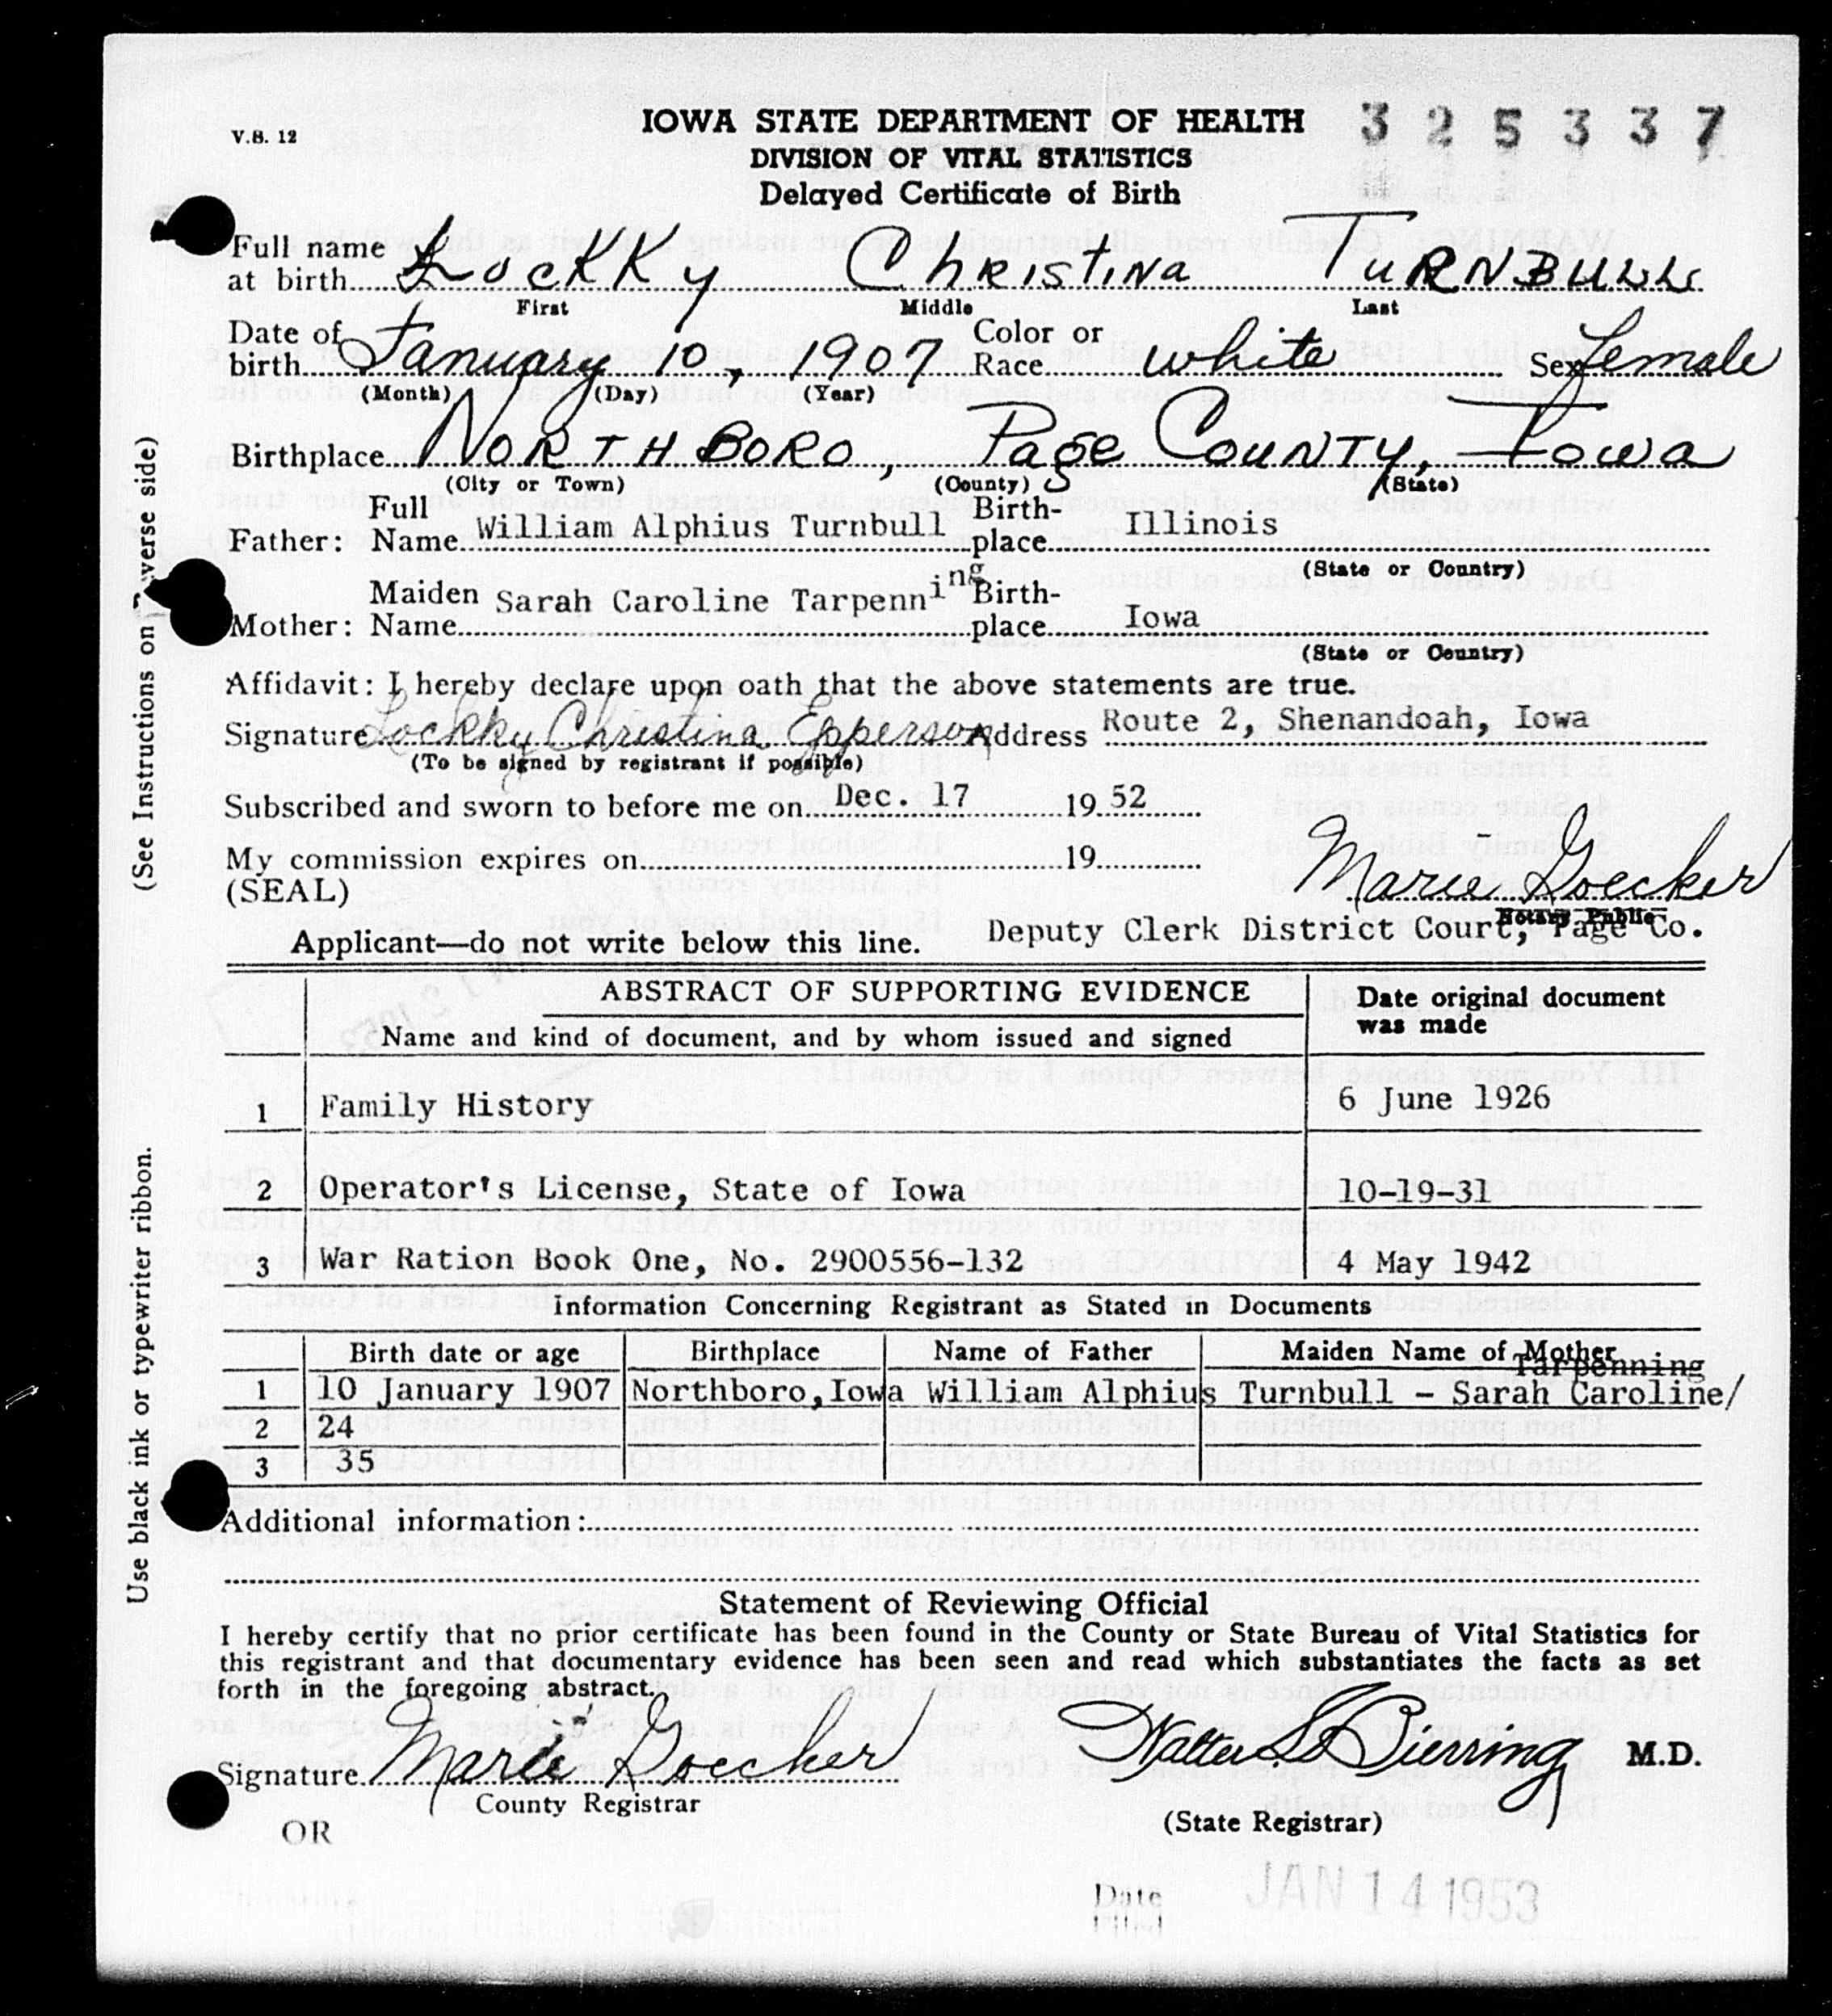 V.S. 12
IOWA STATE DEPARTMENT OF HEALTH 325337
DIVISION OF VITAL STATISTICS
Delayed Certificate of Birth
Full name at birth Lockky Christina Turnbull
First Middle Last
Date of birth January 10, 1907 Color or Race white Sex Female
(Month) (Day) (Year)
Birthplace Northboro, Page County, Iowa
(City or Town) (County) (State)
Father: Full Name William Alphius Turnbull Birthplace Illinois
(State or Country)
Mother: Maiden Name Sarah Caroline Tarpenning Birthplace Iowa
(State or Country)
Affidavit: I hereby declare upon oath that the above statements are true.
Signature Lockky Christina Epperson Address Route 2, Shenandoah, Iowa
(To be signed by registrant if possible)
Subscribed and sworn to before me on Dec. 17 1952
My commission expires on 19
(SEAL)
Marie Goecker
Notary Public
Applicant—do not write below this line. Deputy Clerk District Court, Page Co.
ABSTRACT OF SUPPORTING EVIDENCE
Name and kind of document, and by whom issued and signed
Date original document was made
1 Family History 6 June 1926
2 Operator's License, State of Iowa 10-19-31
3 War Ration Book One, No. 2900556-132 4 May 1942
Information Concerning Registrant as Stated in Documents
Birth date or age Birthplace Name of Father Maiden Name of Mother
Tarpenning
1 10 January 1907 Northboro, Iowa William Alphius Turnbull - Sarah Caroline/
2 24
3 35
Additional information:
Statement of Reviewing Official
I hereby certify that no prior certificate has been found in the County or State Bureau of Vital Statistics for
this registrant and that documentary evidence has been seen and read which substantiates the facts as set
forth in the foregoing abstract.
Signature Marie Goecker Walter L. Bierring M.D.
County Registrar
(State Registrar)
OR
Date Filed JAN 14 1953
(See Instructions on Reverse side)
Use black ink or typewriter ribbon.